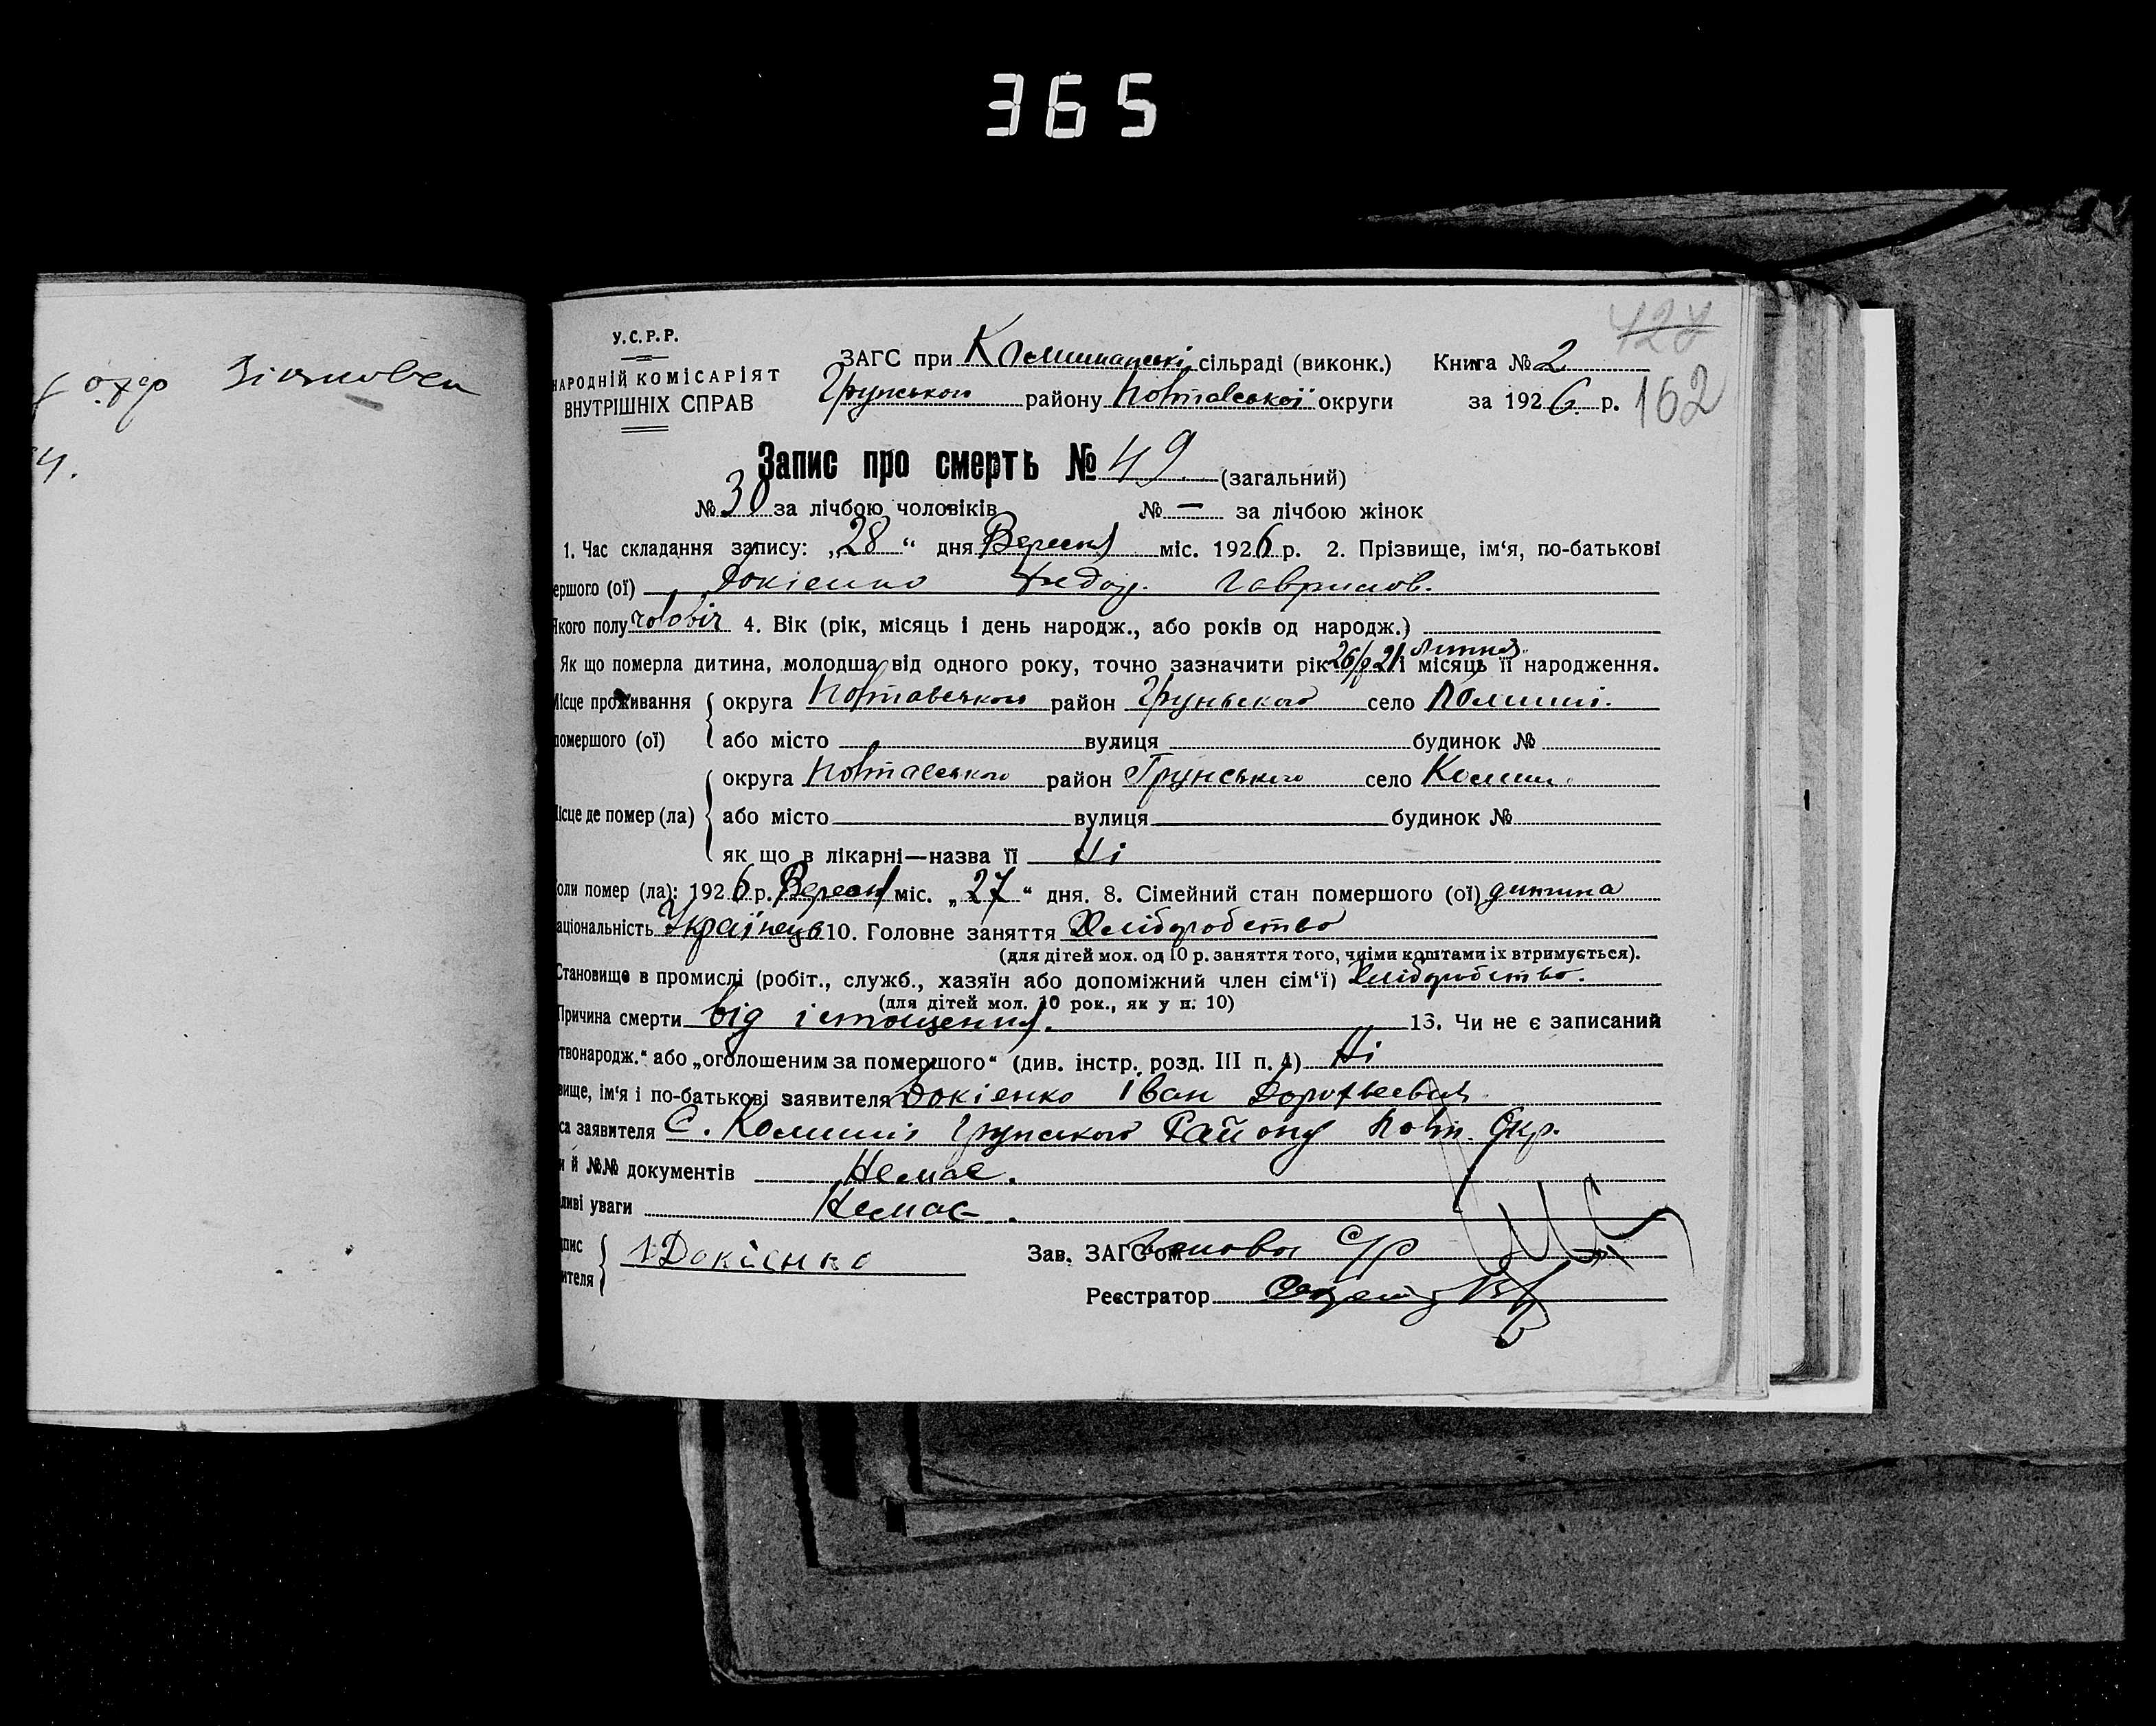 365
У.С.Р.Р.
НАРОДНІЙ КОМІСАРІЯТ
ВНУТРІШНІХ СПРАВ
ЗАГС при сільраді (виконк.) Книга № 2
Грунського району Полтавської округи за 1926 р. 162
Запис про смерть № 49 (загальний)
№ 30 за лічбою чоловіків № — за лічбою жінок
1. Час складання запису: „28“ дня Вересня міс. 1926 р. 2. Прізвище, ім‘я, по-батькові
ершого (ої) Докіенко Федор. Гаврилов.
Якого полу чоловіч 4. Вік (рік, місяць і день народж., або років од народж.)
Як що померла дитина, молодша від одного року, точно зазначити рік 26/р 21 і Липня місяць її народження.
Місце проживання округа Полтавського район Груньского село
помершого (ої) або місто вулиця будинок №
округа Полтавського район Грунського село Комиш.
Місце де помер (ла) або місто вулиця будинок №
як що в лікарні—назва її Ні
Коли помер (ла): 1926 р. Вересня міс. „27“ дня. 8. Сімейний стан помершого (ої) дитина
аціональність Українець 10. Головне заняття Хліборобство
(для дітей мол. од 10 р. заняття того, чиїми коштами їх втримується).
Становище в промислі (робіт., служб., хазяїн або допоміжний член сім‘ї) Хліборобство.
(для дітей мол. 10 рок., як у п. 10)
Причина смерти від істощення. 13. Чи не є записаний
твонародж.“ або „оголошеним за помершого“ (див. інстр. розд. III п. 4) Ні
вище, ім‘я і по-батькові заявителя Докіенко Іван Дорофеевич
са заявителя С. Комиші Грунського Району Полт. Окр.
и й №№ документів Немає.
ливі уваги Немає.
дпис
ителя
І Докіенко Зав. ЗАГС‘ом Голова С/р
Реєстратор